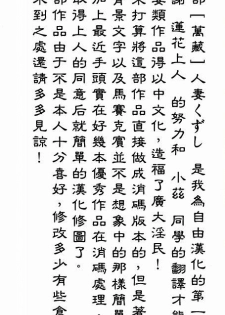 部[萬藏]人妻くずし 是我為自由漢化的第一
謝 蓮花上人 的努力和 小茲 同學的翻譯才能
妻類作品得以中文化,造福了廣大淫民!
來打算將這部作品直接做成消碼版本的,但是著
背景文字以及馬賽克賓並不是想象中的那樣簡單
加上最近手頭實在好幾本優秀作品在消碼處理,
取得上人的同意后就簡單的漢化修圖了。
部作品由于不是本人十分喜好,修改多少有些倉
不到之處還請多多見諒!